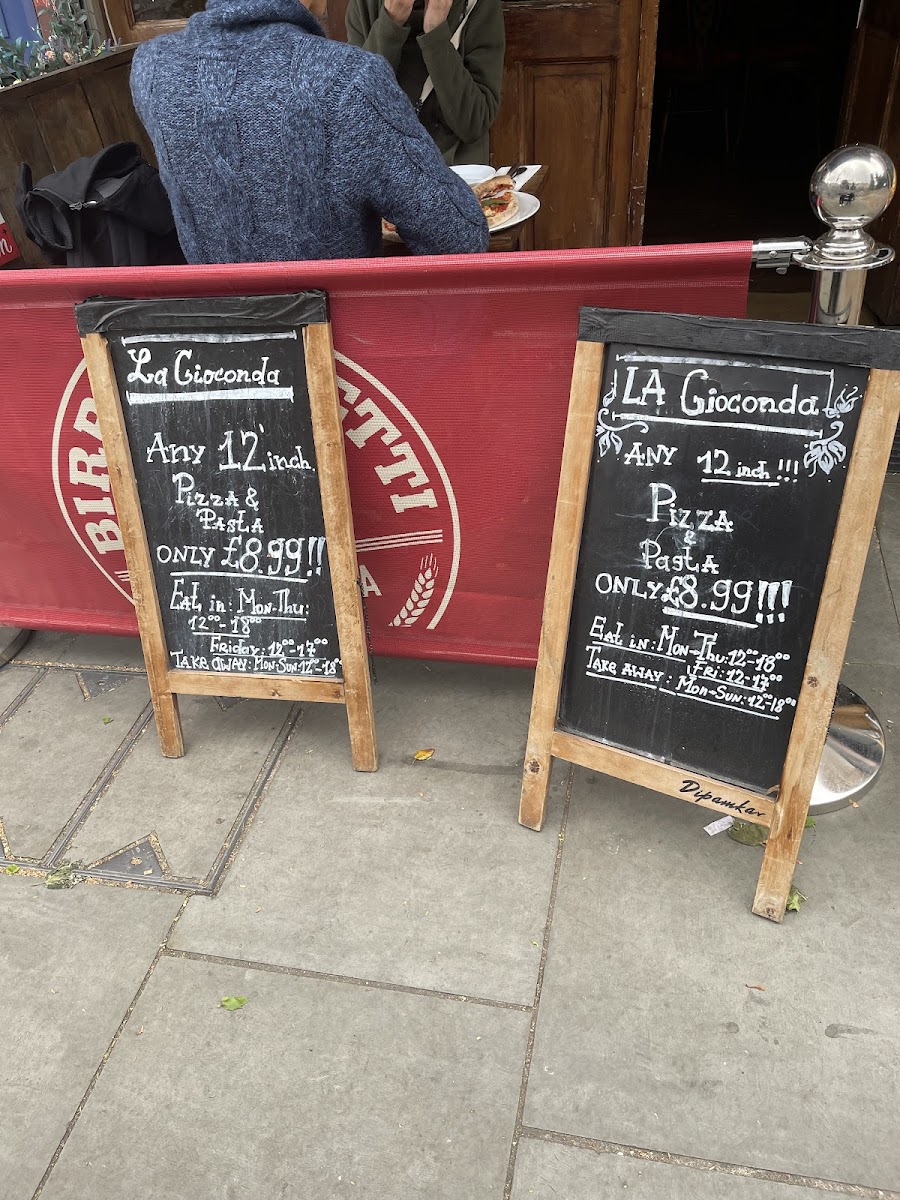 La Gioconda
Any 12 inch
Pizza &
Pasta
ONLY £8.99!!
Eat in: Mon-Thu:
12⁰⁰-18⁰⁰
Friday: 12⁰⁰-17⁰⁰
Take away: Mon-Sun: 12⁰⁰-18⁰⁰
LA Gioconda
ANY 12 inch!!!
Pizza
&
Pasta
ONLY £8.99!!!
Eat in: Mon-Thu: 12⁰⁰-18⁰⁰
Fri: 12-17⁰⁰
Take away: Mon-Sun: 12⁰⁰-18⁰⁰
Dipamkar
BIRR
ETTI
A